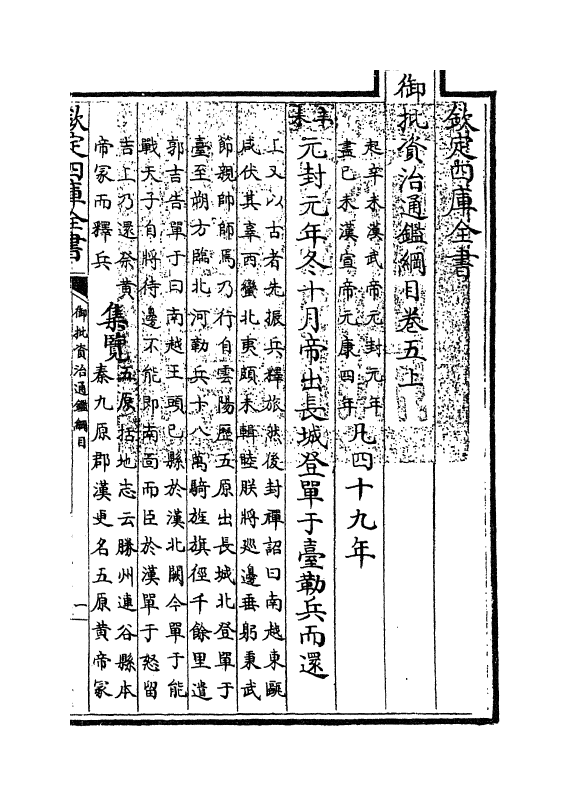 欽定四庫全書
御批資治通鑑綱目卷五上
起辛未漢武帝元封元年
盡己未漢宣帝元康四年
凡四十九年
辛未
元封元年冬十月帝出長城登單于臺勒兵而還
上又以古者先振兵釋旅然後封禪詔曰南越東甌
咸伏其辜西蠻北夷頗未輯睦朕將巡邊垂躬秉武
節親帥師焉乃行自雲陽歷五原出長城北登單于
臺至朔方臨北河勒兵十八萬騎旌旗徑千餘里遣
郭吉告單于曰南越王頭已縣於漢北闕今單于能
戰天子自將待邊不能即南面而臣於漢單于怒留
吉上乃還祭黄
帝冢而釋兵
集覽
五原括地志云勝州連谷縣本
秦九原郡漢更名五原黄帝冢
欽定四庫全書
御批資治通鑑綱目
一